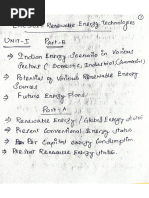 Renewable Energy Technologies
UNIT-I Part-B
→ Indian Energy Scenario in Various
Sectors (Domestic, Industrial, Commercial)
→ Potential of Various Renewable Energy
Sources
→ Future Energy Plans
Part-A
→ Renewable Energy / Global Energy status
→ Present Conventional Energy status
→ Per Capital energy Consumption
→ Present Renewable Energy status